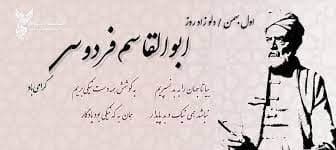 اول بهمن / دلو زاد روز
ابوالقاسم فردوسی
گرامی باد
بیا تا جهان را به بد نسپریم
به کوشش همه دست نیکی بریم
نباشد همی نیک و بد پایدار
همان به که نیکی بود یادگار